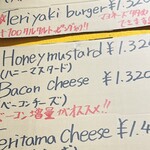 Teriyaki burger ¥1,320
Honeymustard ¥1,320
(ハニーマスタード)
Bacon cheese ¥1,320
(ベーコンチーズ)
ベーコン増量がオススメ!!
eritama Cheese ¥1,4